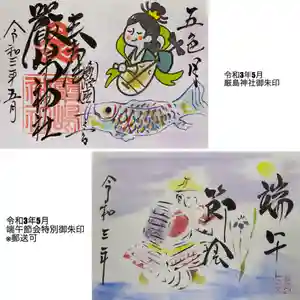 五色
奉拝
嚴島神社
令和三年五月
令和3年5月
厳島神社御朱印
端午
節会
令和三年
令和3年5月
端午節会特別御朱印
※郵送可